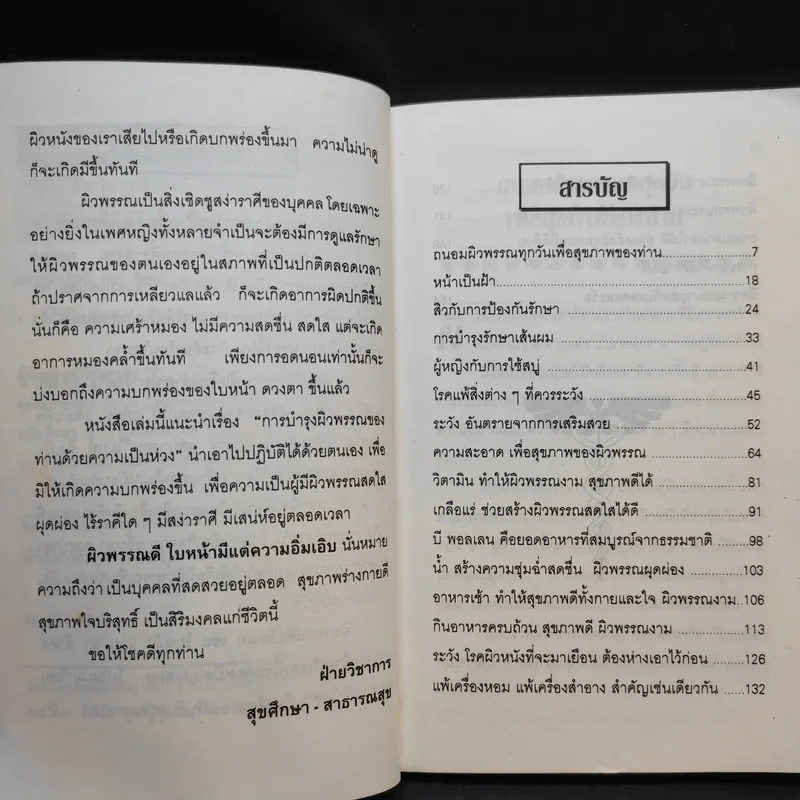 ผิวหนังของเราเสียไปหรือเกิดบกพร่องขึ้นมา ความไม่น่าดู
ก็จะเกิดมีขึ้นทันที
ผิวพรรณเป็นสิ่งเชิดชูสง่าราศีของบุคคล โดยเฉพาะ
อย่างยิ่งในเพศหญิงทั้งหลายจำเป็นจะต้องมีการดูแลรักษา
ให้ผิวพรรณของตนเองอยู่ในสภาพที่เป็นปกติตลอดเวลา
ถ้าปราศจากการเหลียวแลแล้ว ก็จะเกิดอาการผิดปกติขึ้น
นั่นก็คือ ความเศร้าหมอง ไม่มีความสดชื่น สดใส แต่จะเกิด
อาการหมองคล้ำขึ้นทันที เพียงการอดนอนเท่านั้นก็จะ
บ่งบอกถึงความบกพร่องของใบหน้า ดวงตา ขึ้นแล้ว
หนังสือเล่มนี้แนะนำเรื่อง “การบำรุงผิวพรรณของ
ท่านด้วยความเป็นห่วง” นำเอาไปปฏิบัติได้ด้วยตนเอง เพื่อ
มิให้เกิดความบกพร่องขึ้น เพื่อความเป็นผู้มีผิวพรรณสดใส
ผุดผ่อง ไร้ราคีใด ๆ มีสง่าราศี มีเสน่ห์อยู่ตลอดเวลา
ผิวพรรณดี ใบหน้ามีแต่ความอิ่มเอิบ นั่นหมาย
ความถึงว่า เป็นบุคคลที่สดสวยอยู่ตลอด สุขภาพร่างกายดี
สุขภาพใจบริสุทธิ์ เป็นสิริมงคลแก่ชีวิตนี้
ขอให้โชคดีทุกท่าน
ฝ่ายวิชาการ
สุขศึกษา - สาธารณสุข
สารบัญ
ถนอมผิวพรรณทุกวันเพื่อสุขภาพของท่าน....................7
หน้าเป็นฝ้า.........................................................18
สิวกับการป้องกันรักษา .........................................24
การบำรุงรักษาเส้นผม ...........................................33
ผู้หญิงกับการใช้สบู่ ..............................................41
โรคแพ้สิ่งต่าง ๆ ที่ควรระวัง....................................45
ระวัง อันตรายจากการเสริมสวย ..............................52
ความสะอาด เพื่อสุขภาพของผิวพรรณ .....................64
วิตามิน ทำให้ผิวพรรณงาม สุขภาพดีได้ ....................81
เกลือแร่ ช่วยสร้างผิวพรรณสดใสได้ดี .......................91
บี พอลเลน คือยอดอาหารที่สมบูรณ์จากธรรมชาติ ......98
น้ำ สร้างความชุ่มฉ่ำสดชื่น ผิวพรรณผุดผ่อง .............103
อาหารเช้า ทำให้สุขภาพดีทั้งกายและใจ ผิวพรรณงาม..106
กินอาหารครบถ้วน สุขภาพดี ผิวพรรณงาม ...............113
ระวัง โรคผิวหนังที่จะมาเยือน ต้องห่างเอาไว้ก่อน ........126
แพ้เครื่องหอม แพ้เครื่องสำอาง สำคัญเช่นเดียวกัน ......132